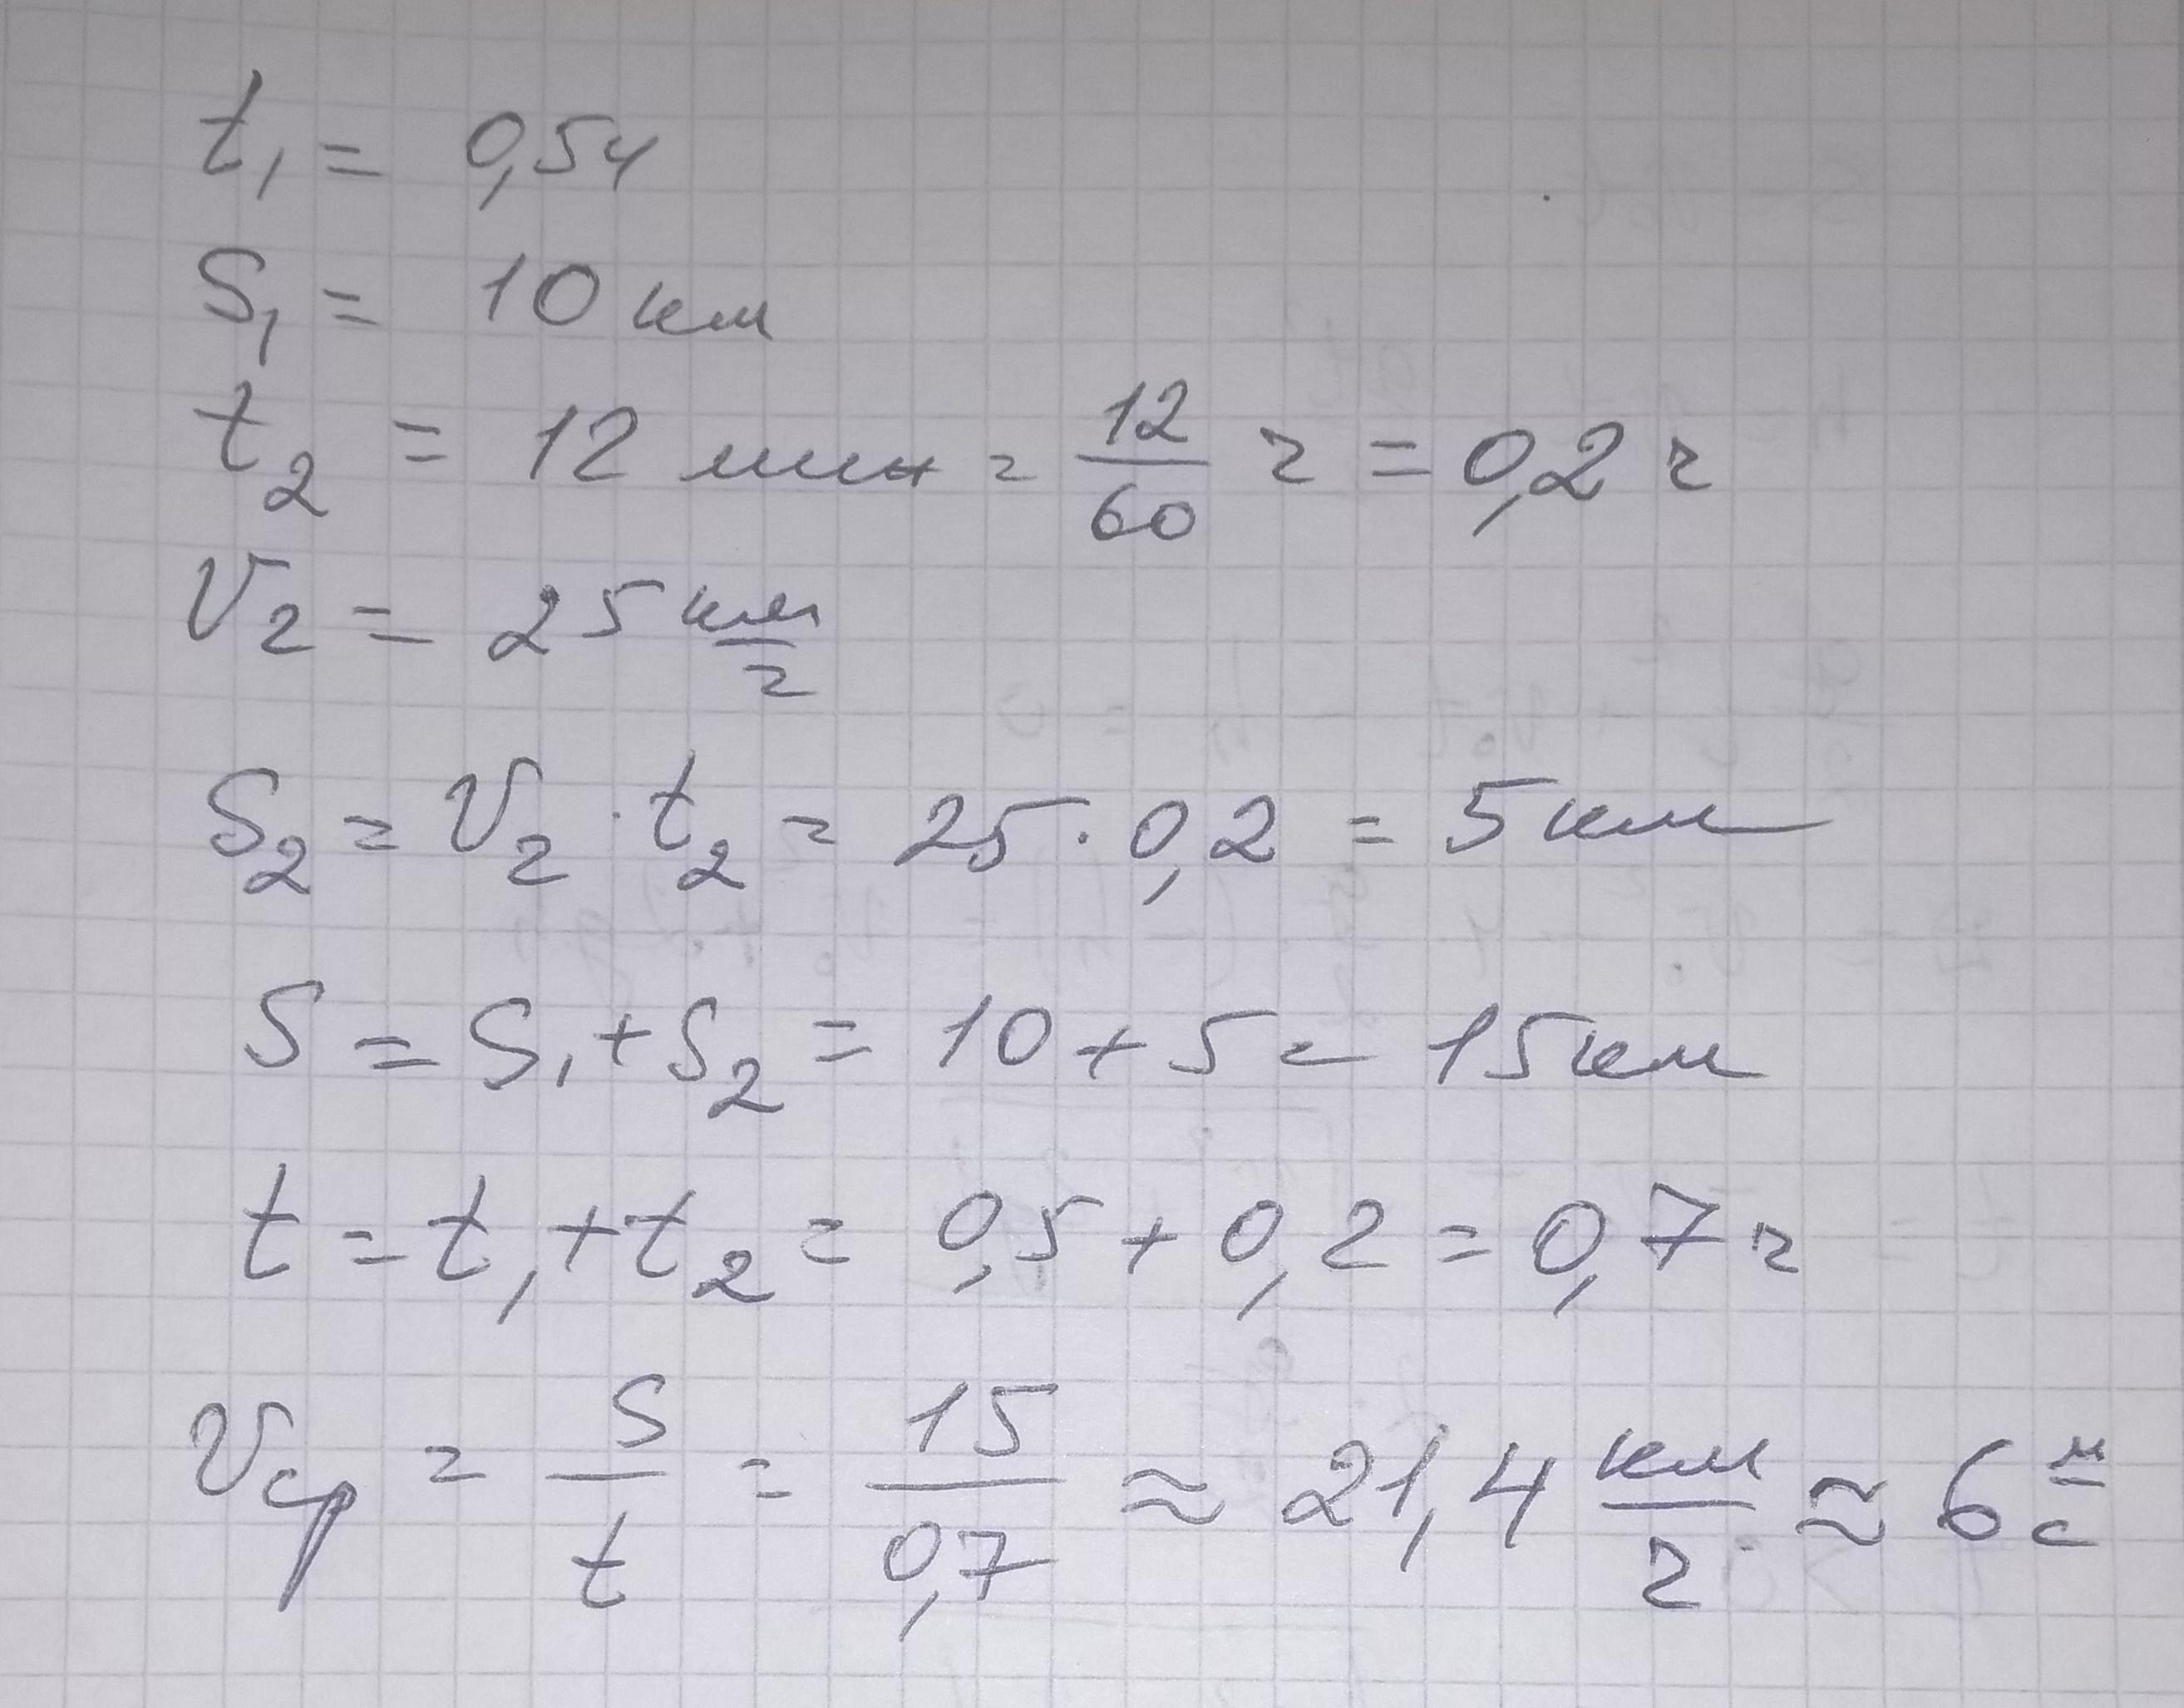 t₁ = 0,5ч
S₁ = 10 км
t₂ = 12 мин = 12/60 ч = 0,2 ч
V₂ = 25 км/ч
S₂ = V₂ · t₂ = 25 · 0,2 = 5 км
S = S₁ + S₂ = 10 + 5 = 15 км
t = t₁ + t₂ = 0,5 + 0,2 = 0,7 ч
Vср = S/t = 15/0,7 ≈ 21,4 км/ч ≈ 6 м/с